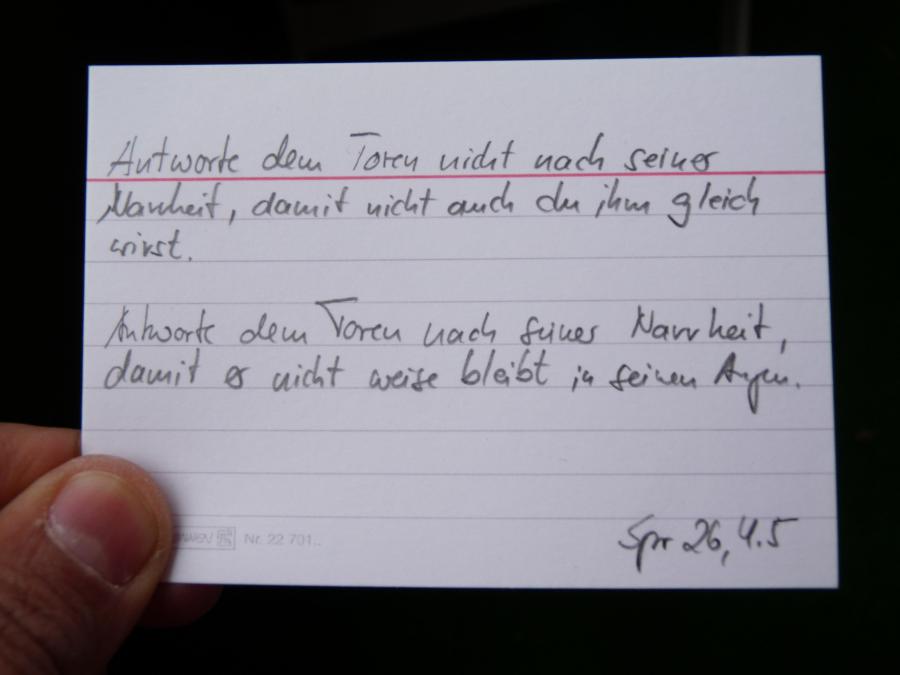 Antworte dem Toren nicht nach seiner
Narrheit, damit nicht auch du ihm gleich
wirst.
Antworte dem Toren nach seiner Narrheit,
damit er nicht weise bleibt in seinen Augen.
Nr. 22 701..
Spr 26, 4.5